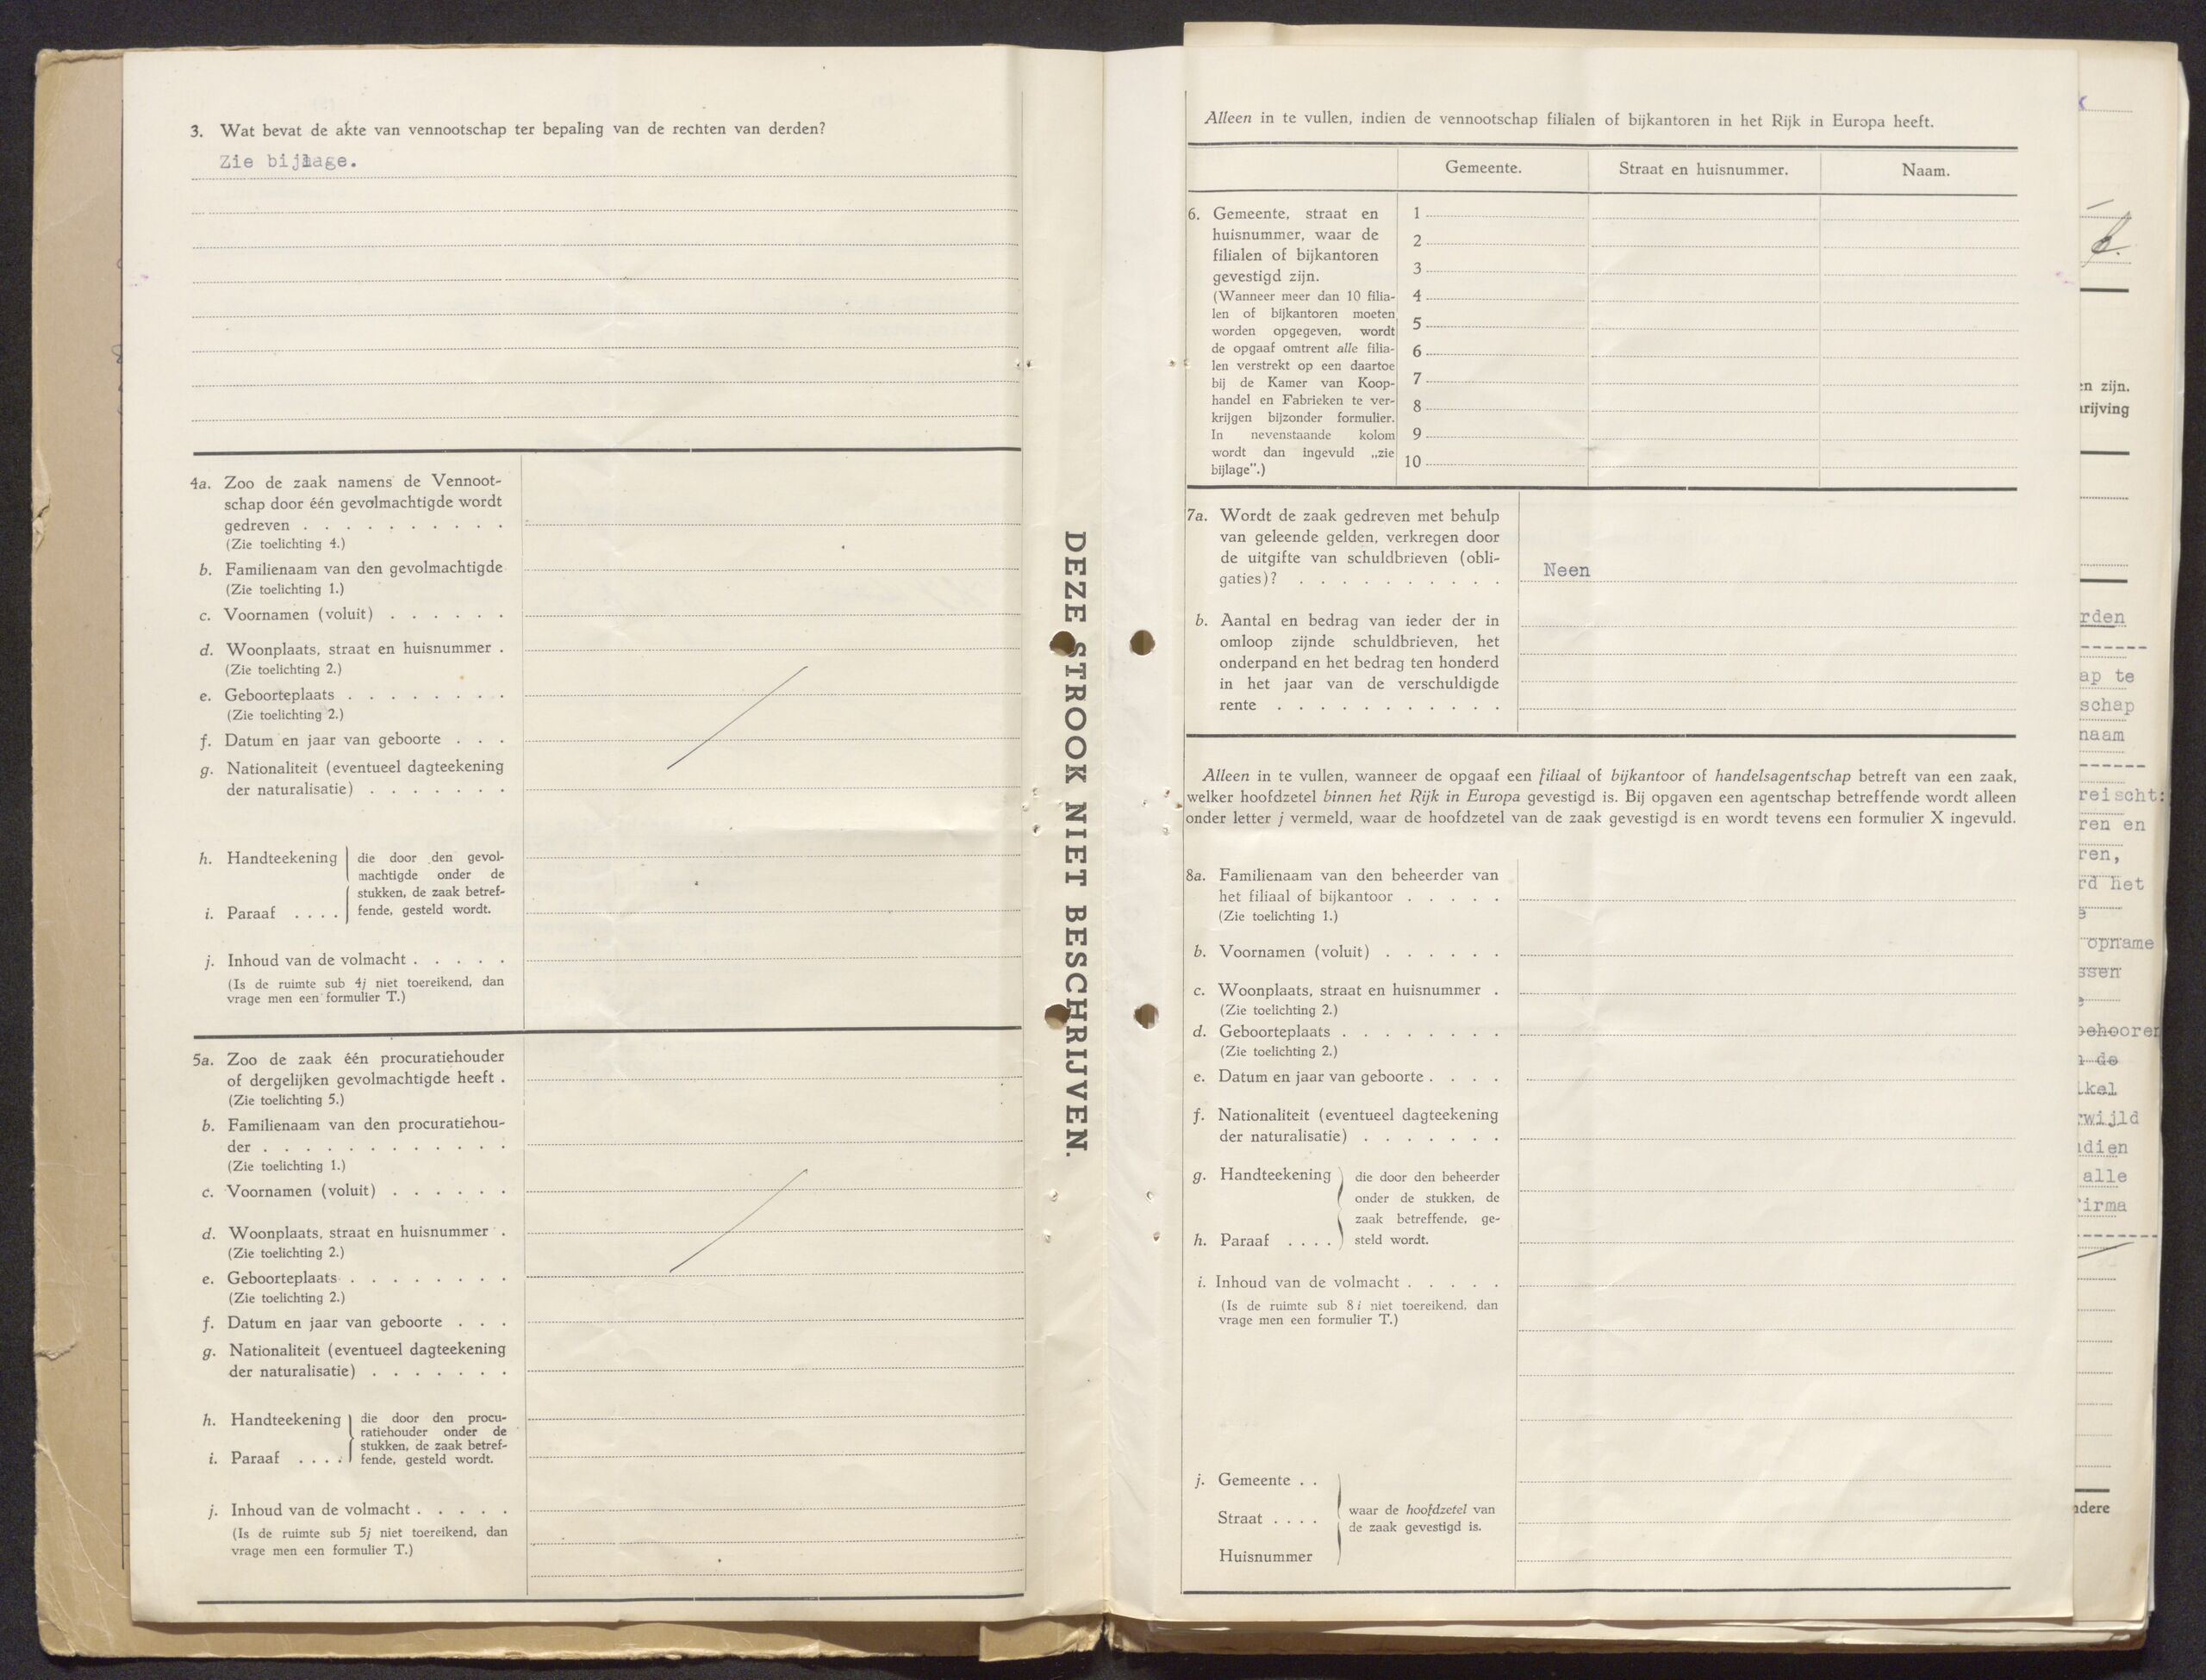 3. Wat bevat de akte van vennootschap ter bepaling van de rechten van derden?
Zie bijlage.
4a. Zoo de zaak namens de Vennoot-
schap door één gevolmachtigde wordt
gedreven . . . . . . . . . .
(Zie toelichting 4.)
b. Familienaam van den gevolmachtigde
(Zie toelichting 1.)
c. Voornamen (voluit) . . . . . .
d. Woonplaats, straat en huisnummer .
(Zie toelichting 2.)
e. Geboorteplaats . . . . . . . .
(Zie toelichting 2.)
f. Datum en jaar van geboorte . . .
g. Nationaliteit (eventueel dagteekening
der naturalisatie) . . . . . . .
h. Handteekening
i. Paraaf . . . .
die door den gevol-
machtigde onder de
stukken, de zaak betref-
fende, gesteld wordt.
j. Inhoud van de volmacht . . . . .
(Is de ruimte sub 4j niet toereikend, dan
vrage men een formulier T.)
5a. Zoo de zaak één procuratiehouder
of dergelijken gevolmachtigde heeft .
(Zie toelichting 5.)
b. Familienaam van den procuratiehou-
der . . . . . . . . . . . .
(Zie toelichting 1.)
c. Voornamen (voluit) . . . . . .
d. Woonplaats, straat en huisnummer .
(Zie toelichting 2.)
e. Geboorteplaats . . . . . . . .
(Zie toelichting 2.)
f. Datum en jaar van geboorte . . .
g. Nationaliteit (eventueel dagteekening
der naturalisatie) . . . . . . .
h. Handteekening
i. Paraaf . . . .
die door den procu-
ratiehouder onder de
stukken, de zaak betref-
fende, gesteld wordt.
j. Inhoud van de volmacht . . . . .
(Is de ruimte sub 5j niet toereikend, dan
vrage men een formulier T.)
DEZE STROOK NIET BESCHRIJVEN.
Alleen in te vullen, indien de vennootschap filialen of bijkantoren in het Rijk in Europa heeft.
Gemeente. Straat en huisnummer. Naam.
6. Gemeente, straat en
huisnummer, waar de
filialen of bijkantoren
gevestigd zijn.
(Wanneer meer dan 10 filia-
len of bijkantoren moeten
worden opgegeven, wordt
de opgaaf omtrent alle filia-
len verstrekt op een daartoe
bij de Kamer van Koop-
handel en Fabrieken te ver-
krijgen bijzonder formulier.
In nevenstaande kolom
wordt dan ingevuld „zie
bijlage".)
1
2
3
4
5
6
7
8
9
10
7a. Wordt de zaak gedreven met behulp
van geleende gelden, verkregen door
de uitgifte van schuldbrieven (obli-
gaties)? . . . . . . . . . . Neen
b. Aantal en bedrag van ieder der in
omloop zijnde schuldbrieven, het
onderpand en het bedrag ten honderd
in het jaar van de verschuldigde
rente . . . . . . . . . . .
Alleen in te vullen, wanneer de opgaaf een filiaal of bijkantoor of handelsagentschap betreft van een zaak,
welker hoofdzetel binnen het Rijk in Europa gevestigd is. Bij opgaven een agentschap betreffende wordt alleen
onder letter j vermeld, waar de hoofdzetel van de zaak gevestigd is en wordt tevens een formulier X ingevuld.
8a. Familienaam van den beheerder van
het filiaal of bijkantoor . . . . .
(Zie toelichting 1.)
b. Voornamen (voluit) . . . . . .
c. Woonplaats, straat en huisnummer .
(Zie toelichting 2.)
d. Geboorteplaats . . . . . . . .
(Zie toelichting 2.)
e. Datum en jaar van geboorte . . . .
f. Nationaliteit (eventueel dagteekening
der naturalisatie) . . . . . . .
g. Handteekening
h. Paraaf . . . .
die door den beheerder
onder de stukken, de
zaak betreffende, ge-
steld wordt.
i. Inhoud van de volmacht . . . . .
(Is de ruimte sub 8i niet toereikend, dan
vrage men een formulier T.)
j. Gemeente . .
Straat . . . .
Huisnummer
waar de hoofdzetel van
de zaak gevestigd is.
en zijn.
rijving
rden
ap te
schap
naam
reischt:
ren en
ren,
rd het
e
opname
ssen
e
behooren
n de
kel
rwijld
ndien
alle
firma
ndere